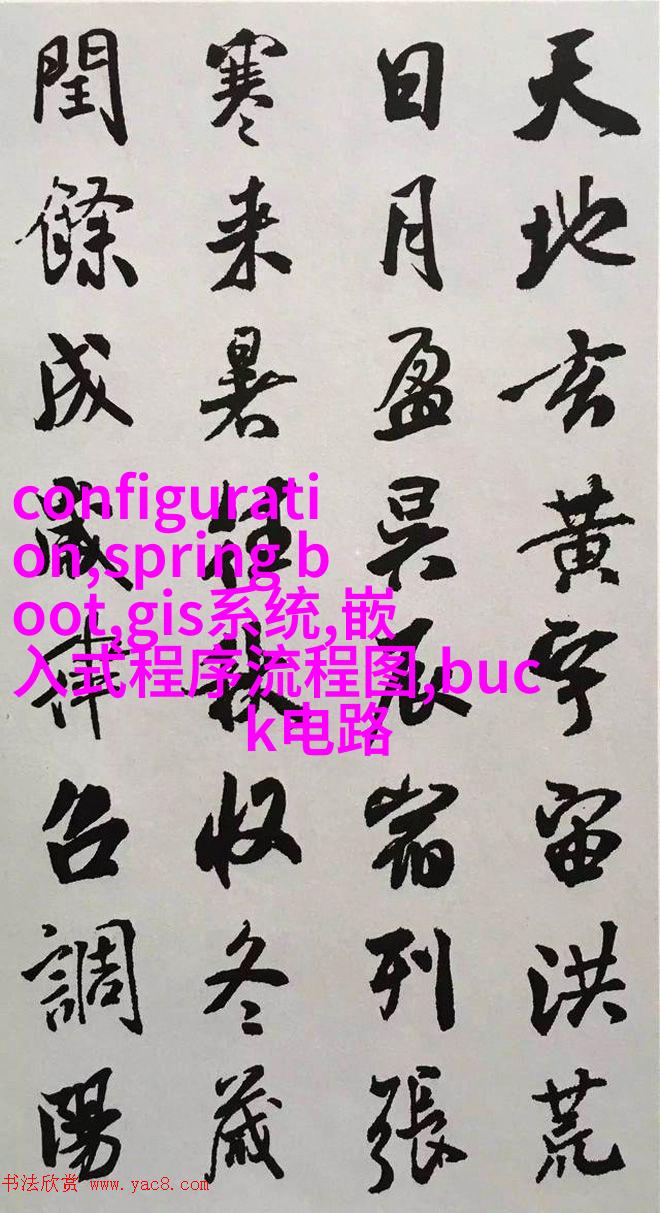 天地玄黄宇宙洪荒
日月盈昃辰宿列張
寒来暑往秋收冬藏
閏餘成歲律召調陽
configurati
on,spring b
oot,gis系统,嵌
入式程序流程图,buc
k电路
书法欣赏 www.yac8.com